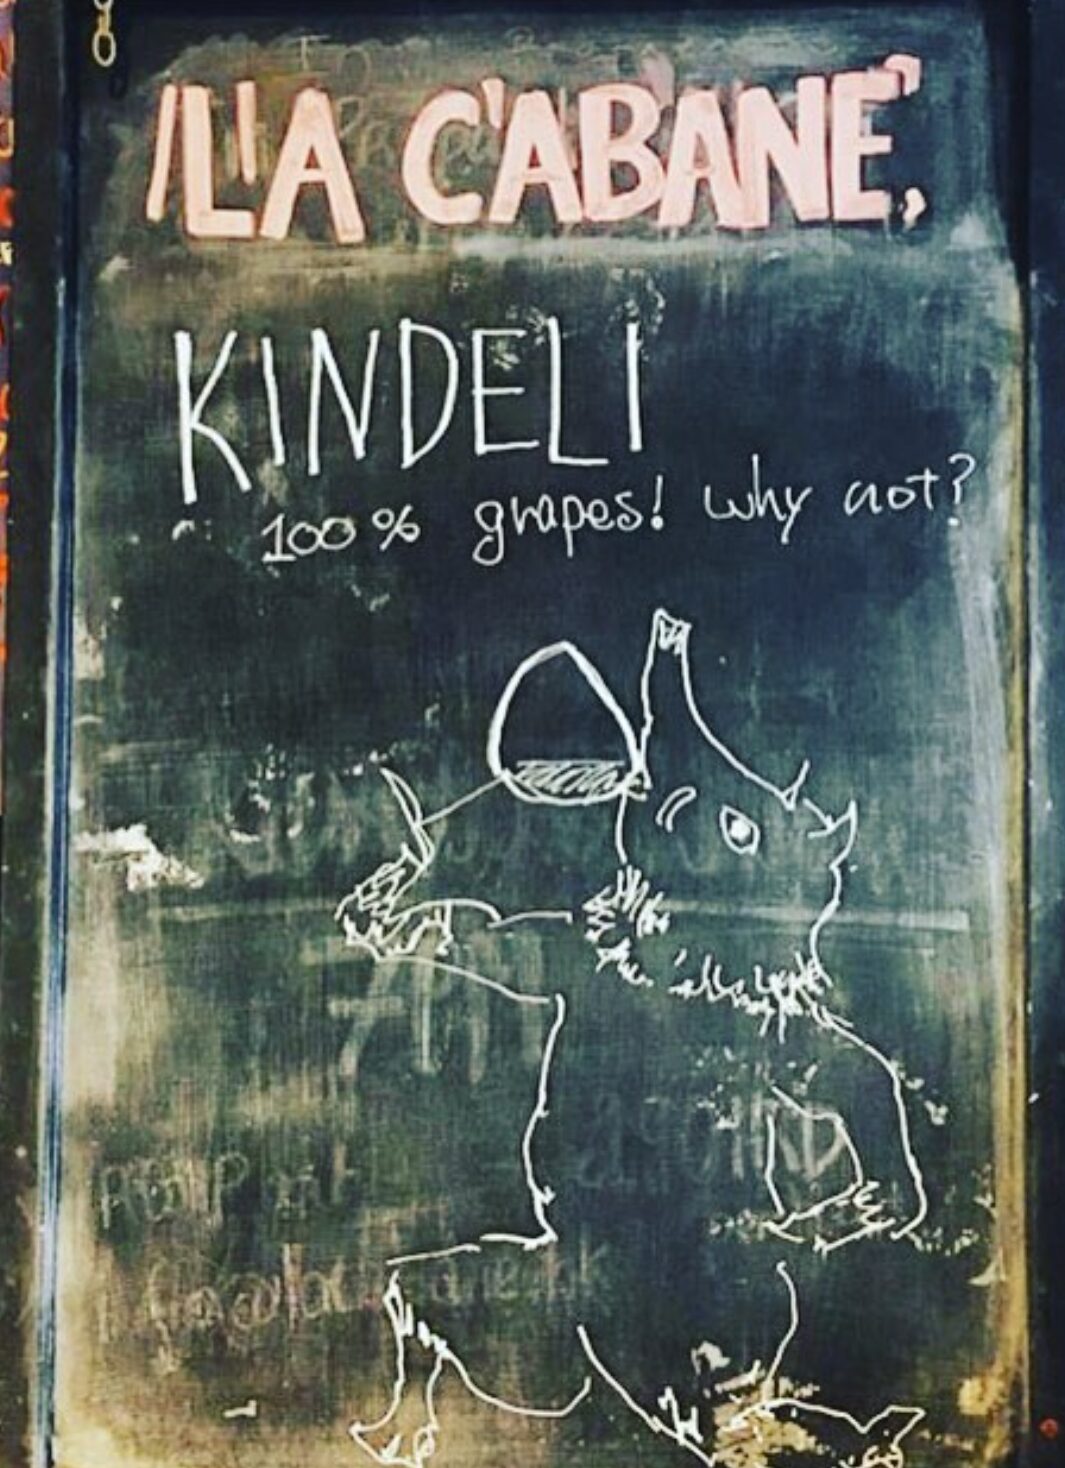 LA CABANE
KINDELI
100% grapes! why not?